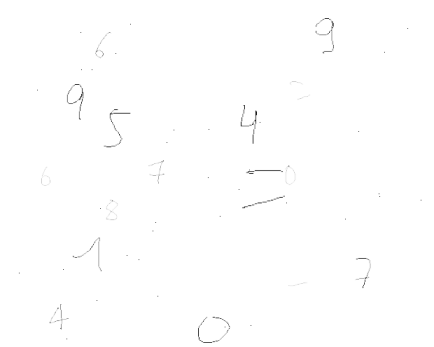 6 9
9 5 4
6 7 0
8
1 7
4 0